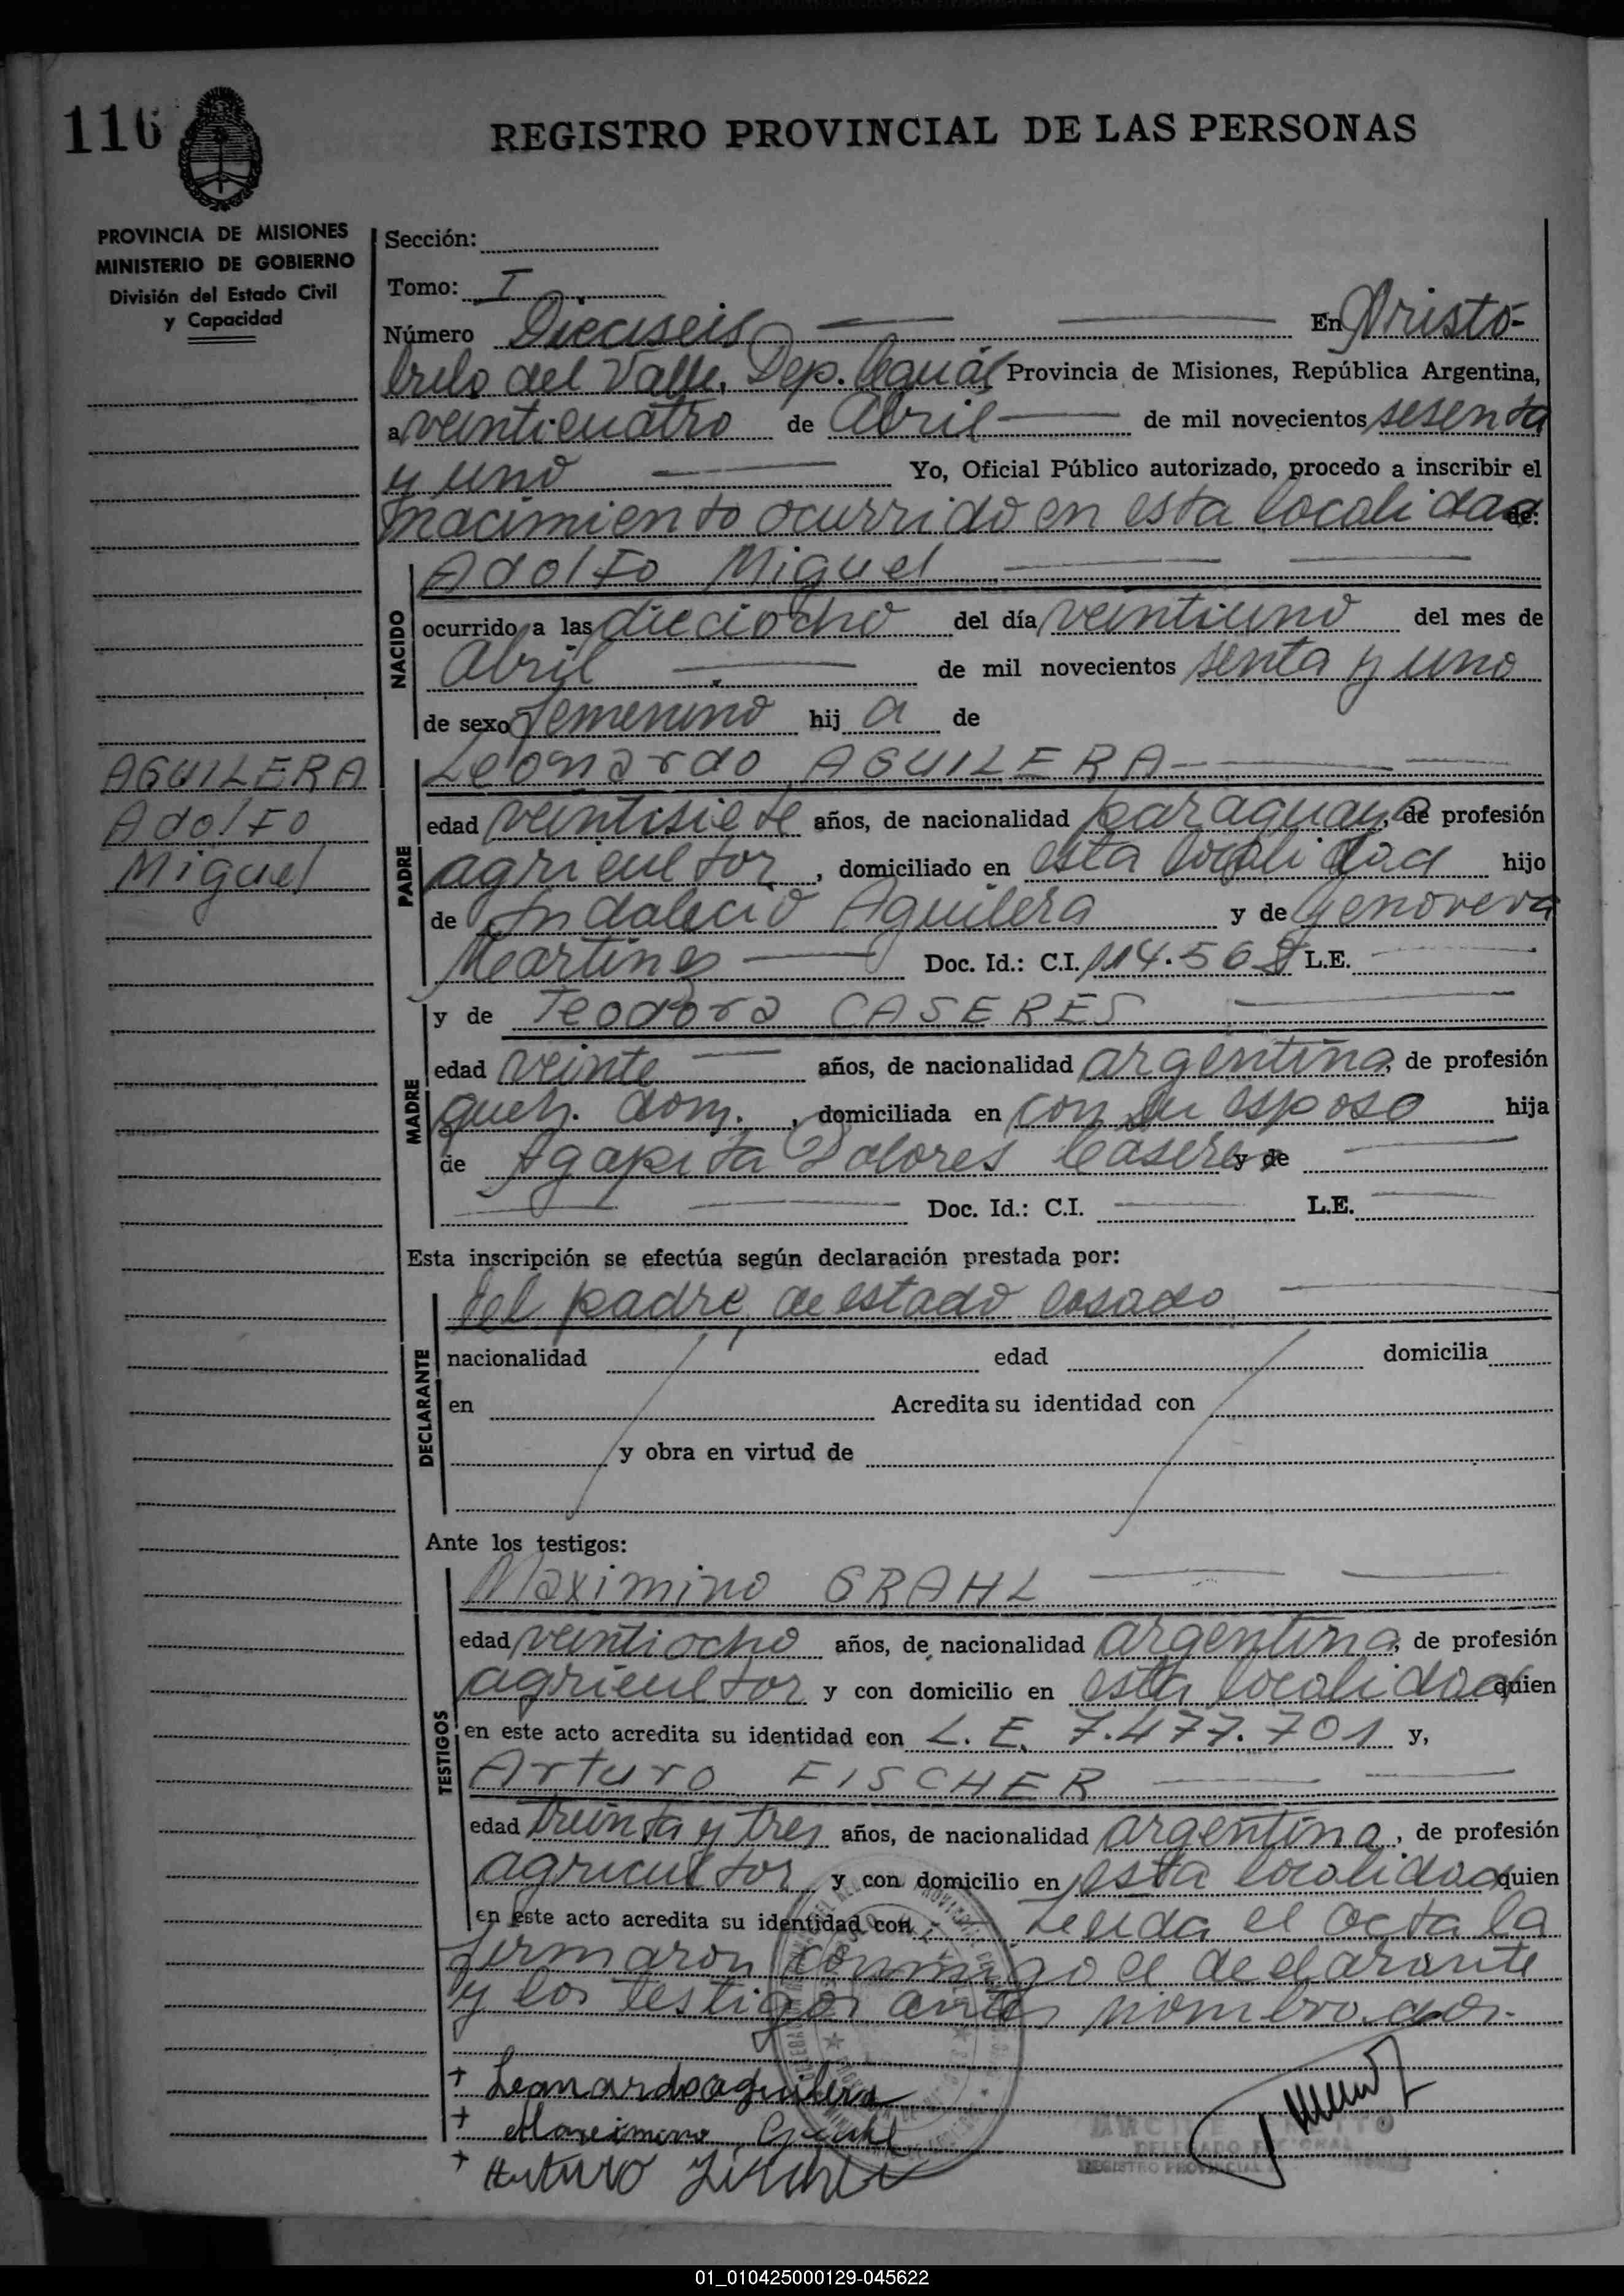 116
REGISTRO PROVINCIAL DE LAS PERSONAS
PROVINCIA DE MISIONES
MINISTERIO DE GOBIERNO
División del Estado Civil
y Capacidad
Sección:
Tomo: I
Número Dieciseis En Aristó-
bulo del Valle, Dep. Cguás Provincia de Misiones, República Argentina,
a veinticuatro de Abril de mil novecientos sesenta
y uno Yo, Oficial Público autorizado, procedo a inscribir el
nacimiento ocurrido en esta localidad de:
NACIDO
Adolfo Miguel
ocurrido a las dieciocho del día veintiuno del mes de
Abril de mil novecientos senta y uno
de sexo femenino hija de
AGUILERA
Adolfo
Miguel
PADRE
Leonardo AGUILERA
edad veintisiete años, de nacionalidad paraguaya, de profesión
agricultor, domiciliado en esta localidad hijo
de Indalecio Aguilera y de Genoveva
Martines Doc. Id.: C.I. 114.568 L.E.
MADRE
y de Teodora CASERES
edad veinte años, de nacionalidad argentina, de profesión
queh. dom., domiciliada en con su esposo hija
de Agapita Dolores Caseres y de
Doc. Id.: C.I. L.E.
Esta inscripción se efectúa según declaración prestada por:
DECLARANTE
del padre, de estado casado
nacionalidad edad domicilia
en Acredita su identidad con
y obra en virtud de
Ante los testigos:
TESTIGOS
Maximino GRAHL
edad veintiocho años, de nacionalidad argentina, de profesión
agricultor y con domicilio en esta localidad quien
en este acto acredita su identidad con L. E. 7.477.701 y,
Arturo FISCHER
edad treinta y tres años, de nacionalidad argentina, de profesión
agricultor y con domicilio en esta localidad quien
en este acto acredita su identidad con Leida el acta la
firmaron conmigo el declarante
y los testigos antes nombrados.
+ Leonardo aguilera
+ Maximino Grahl
+ Arturo Fischer
DELEGADO
REGISTRO PROVINCIAL
01_010425000129-045622